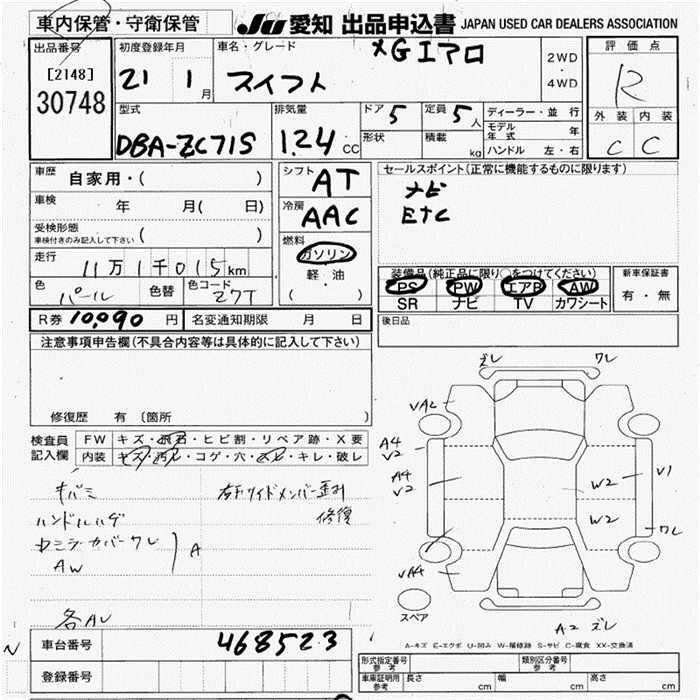 車内保管・守衛保管
JU 愛知 出品申込書 JAPAN USED CAR DEALERS ASSOCIATION
出品番号
[2148]
30748
初度登録年月
21 1 月
車名・グレード
XGエアロ
スイフト
2WD
・
4WD
評価点
R
外装 内装
C C
型式
DBA-ZC71S
排気量
1.24 CC
ドア 5
形状
定員 5 人
積載 kg
ディーラー・並行
モデル年式 年
ハンドル 左・右
車歴 自家用・( )
車検 年 月( 日)
受検形態
車検付きのみ記入して下さい ( )
走行 11万1千015km
色 パール 色替 色コード Z7T
シフト AT
冷房 AAC
燃料
ガソリン
軽・油
( )
セールスポイント(正常に機能するものに限ります)
ナビ
ETC
装備品(純正品に限り○をつけてください)
PS PW エアB AW
SR ナビ TV カワシート
新車保証書
有・無
R券 10,090 円 名変通知期限 月 日
後日品
注意事項申告欄(不具合内容等は具体的に記入して下さい)
修復歴 有 〔箇所 〕
検査員
記入欄
FW キズ・飛石・ヒビ割・リペア跡・X要
内装 キズ・汚レ・コゲ・穴・スレ・キレ・破レ
キバミ
ハンドルハゲ
カバーワレ
AW
A
修復
ズレ ワレ
VA2
A4
V2
A4
V2
VA4
W2
W2
V1
ワレ
スペア
A-2 ズレ
A-キズ E-エクボ U-凹み W-補修跡 S-サビ C-腐食 XX-交換済
車台番号 468523
登録番号
形式指定番号
参考
類別区分番号
参考
車庫証明用
参考
長さ cm 幅 cm 高さ cm